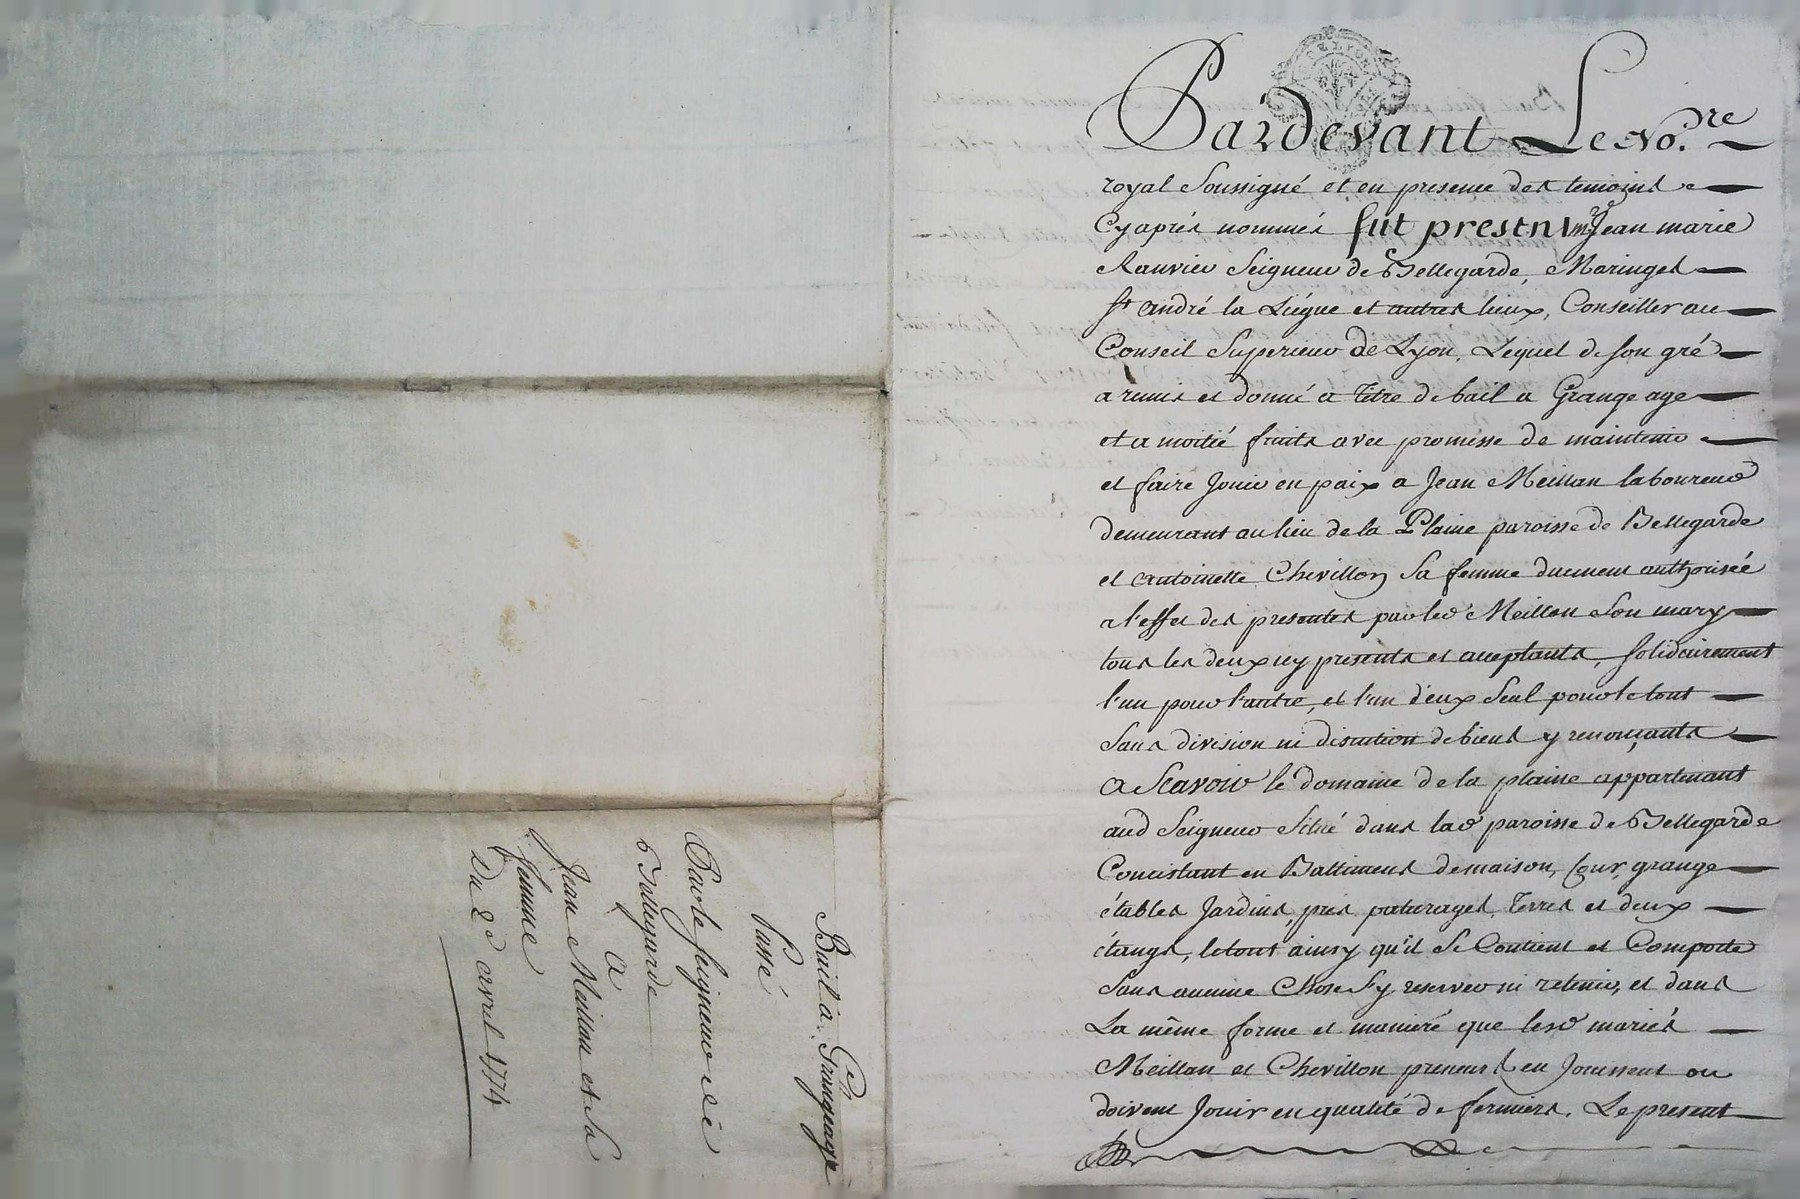 Bail a Grangeage
Passé
Par le seigneur de
Bellegarde
a
Jean Meillan et Sa
femme
Du 2e avril 1774
Pardevant Le No.re
royal Soussigné et en presence des temoins
Cyaprés nommés fut present Mre Jean marie
Ranvier Seigneur de Bellegarde, Maringes
St andré la Liégue et autres lieux, Conseiller au
Conseil Superieur de Lyon, Lequel de son gré
a remis et donné a Titre de bail a Grange age
et a moitié fruits avec promesse de maintenir
et faire Jouir en paix a Jean Meillan laboureur
demeurant au lieu de la Plaine paroisse de Bellegarde
et antoinette Chevillon Sa femme duement authorisée
a l'effet des presentes par led Meillan Son mary
tous les deux icy presents et acceptants, solidairement
l'un pour l'autre, et l'un d'eux Seul pour le tout
Sans division ni discution de biens y renonçants
a Scavoir le domaine de la plaine appartenant
aud Seigneur Situé dans lad paroisse de Bellegarde
Concistant en Battiment de maison, Cour, grange
étables Jardins, prés paturages, Terres et deux
étangs, le tout ainsy qu'il Se Contient et Comporte
Sans aucune Chose S'y reserver ni retenir, et dans
La même forme et maniére que lesd mariés
Meillan et Chevillon preneurs en Jouissent ou
doivent Jouir en qualité de fermiers. Le present